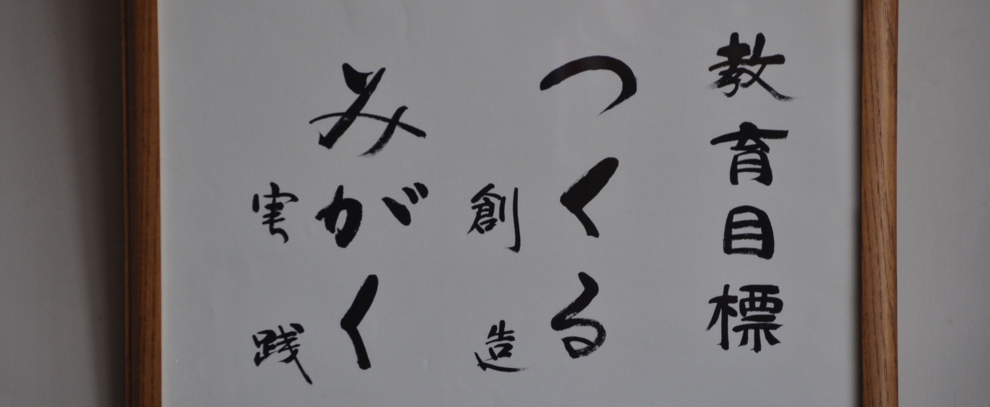 教育目標
つくる
創造
みがく
実践